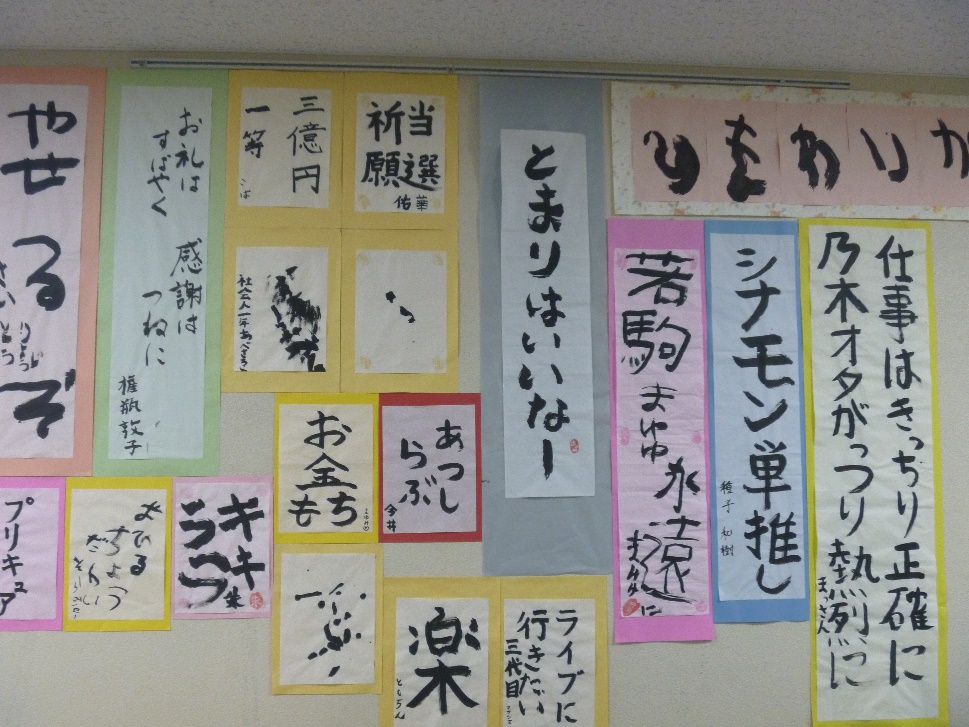 やせ
るぞ
お礼は
すばやく
感謝は
つねに
権瓶敦子
三億円
一等
こば
当選
祈願
佑華
社会人一年あべまさき
とまりはいいなー
ひまわり
か
若駒
まゆゆ
永遠に
シナモン単推し
種子和樹
仕事はきっちり正確に
乃木オタがっつり熱烈に
まいさん
お金
もち
あつし
らぶ
今井
プリキュア
よびる
ちょう
だい
キキ
ララ
朱
楽
ともちん
ライブに
行きたい
三代目